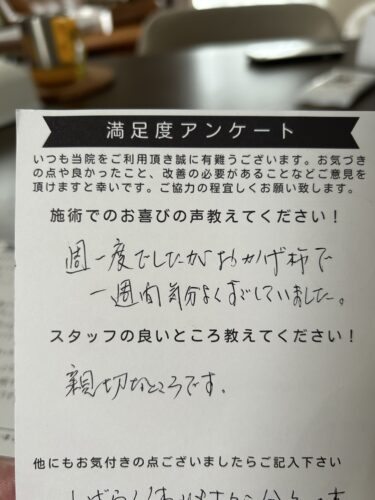 満足度アンケート
いつも当院をご利用頂き誠に有難うございます。お気づき
の点や良かったこと、改善の必要があることなどご意見を
頂けますと幸いです。ご協力の程宜しくお願い致します。
施術でのお喜びの声教えてください！
週一度でしたがおかげ柿で
一週間気分よくすごしていました。
スタッフの良いところ教えてください！
親切なところです。
他にもお気付きの点ございましたらご記入下さい